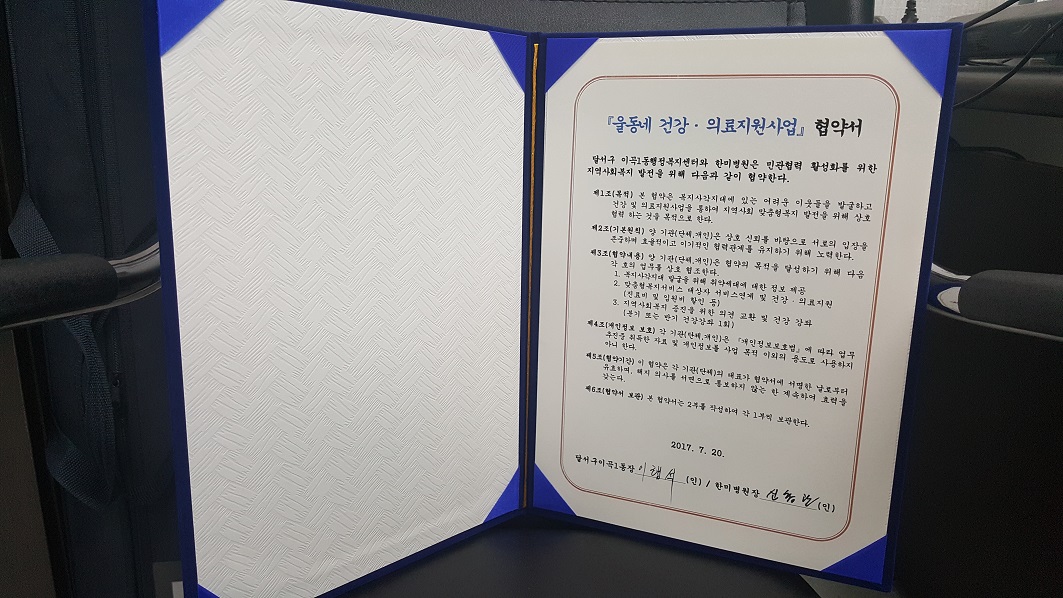 『울동네 건강 · 의료지원사업』 협약서
달서구 이곡1동행정복지센터와 한미병원은 민관협력 활성화를 위한
지역사회복지 발전을 위해 다음과 같이 협약한다.
제1조(목적) 본 협약은 복지사각지대에 있는 어려운 이웃들을 발굴하고
건강 및 의료지원사업을 통하여 지역사회 맞춤형복지 발전을 위해 상호
협력 하는 것을 목적으로 한다.
제2조(기본원칙) 양 기관(단체,개인)은 상호 신뢰를 바탕으로 서로의 입장을
존중하며 효율적이고 이기적인 협력관계를 유지하기 위해 노력한다.
제3조(협약내용) 양 기관(단체,개인)은 협약의 목적을 달성하기 위해 다음
각 호의 업무를 상호 협조한다.
1. 복지사각지대 발굴을 위해 취약세대에 대한 정보 제공
2. 맞춤형복지서비스 대상자 서비스연계 및 건강 · 의료지원
(진료비 및 입원비 할인 등)
3. 지역사회복지 증진을 위한 의견 교환 및 건강 강좌
(분기 또는 반기 건강강좌 1회)
제4조(개인정보 보호) 각 기관(단체,개인)은 『개인정보보호법』에 따라 업무
추진중 취득한 자료 및 개인정보를 사업 목적 이외의 용도로 사용하지
아니 한다.
제5조(협약기간) 이 협약은 각 기관(단체)의 대표가 협약서에 서명한 날로부터
유효하며, 해지 의사를 서면으로 통보하지 않는 한 계속하여 효력을
갖는다.
제6조(협약서 보관) 본 협약서는 2부를 작성하여 각 1부씩 보관한다.
2017. 7. 20.
달서구이곡1동장 (인) / 한미병원장 (인)